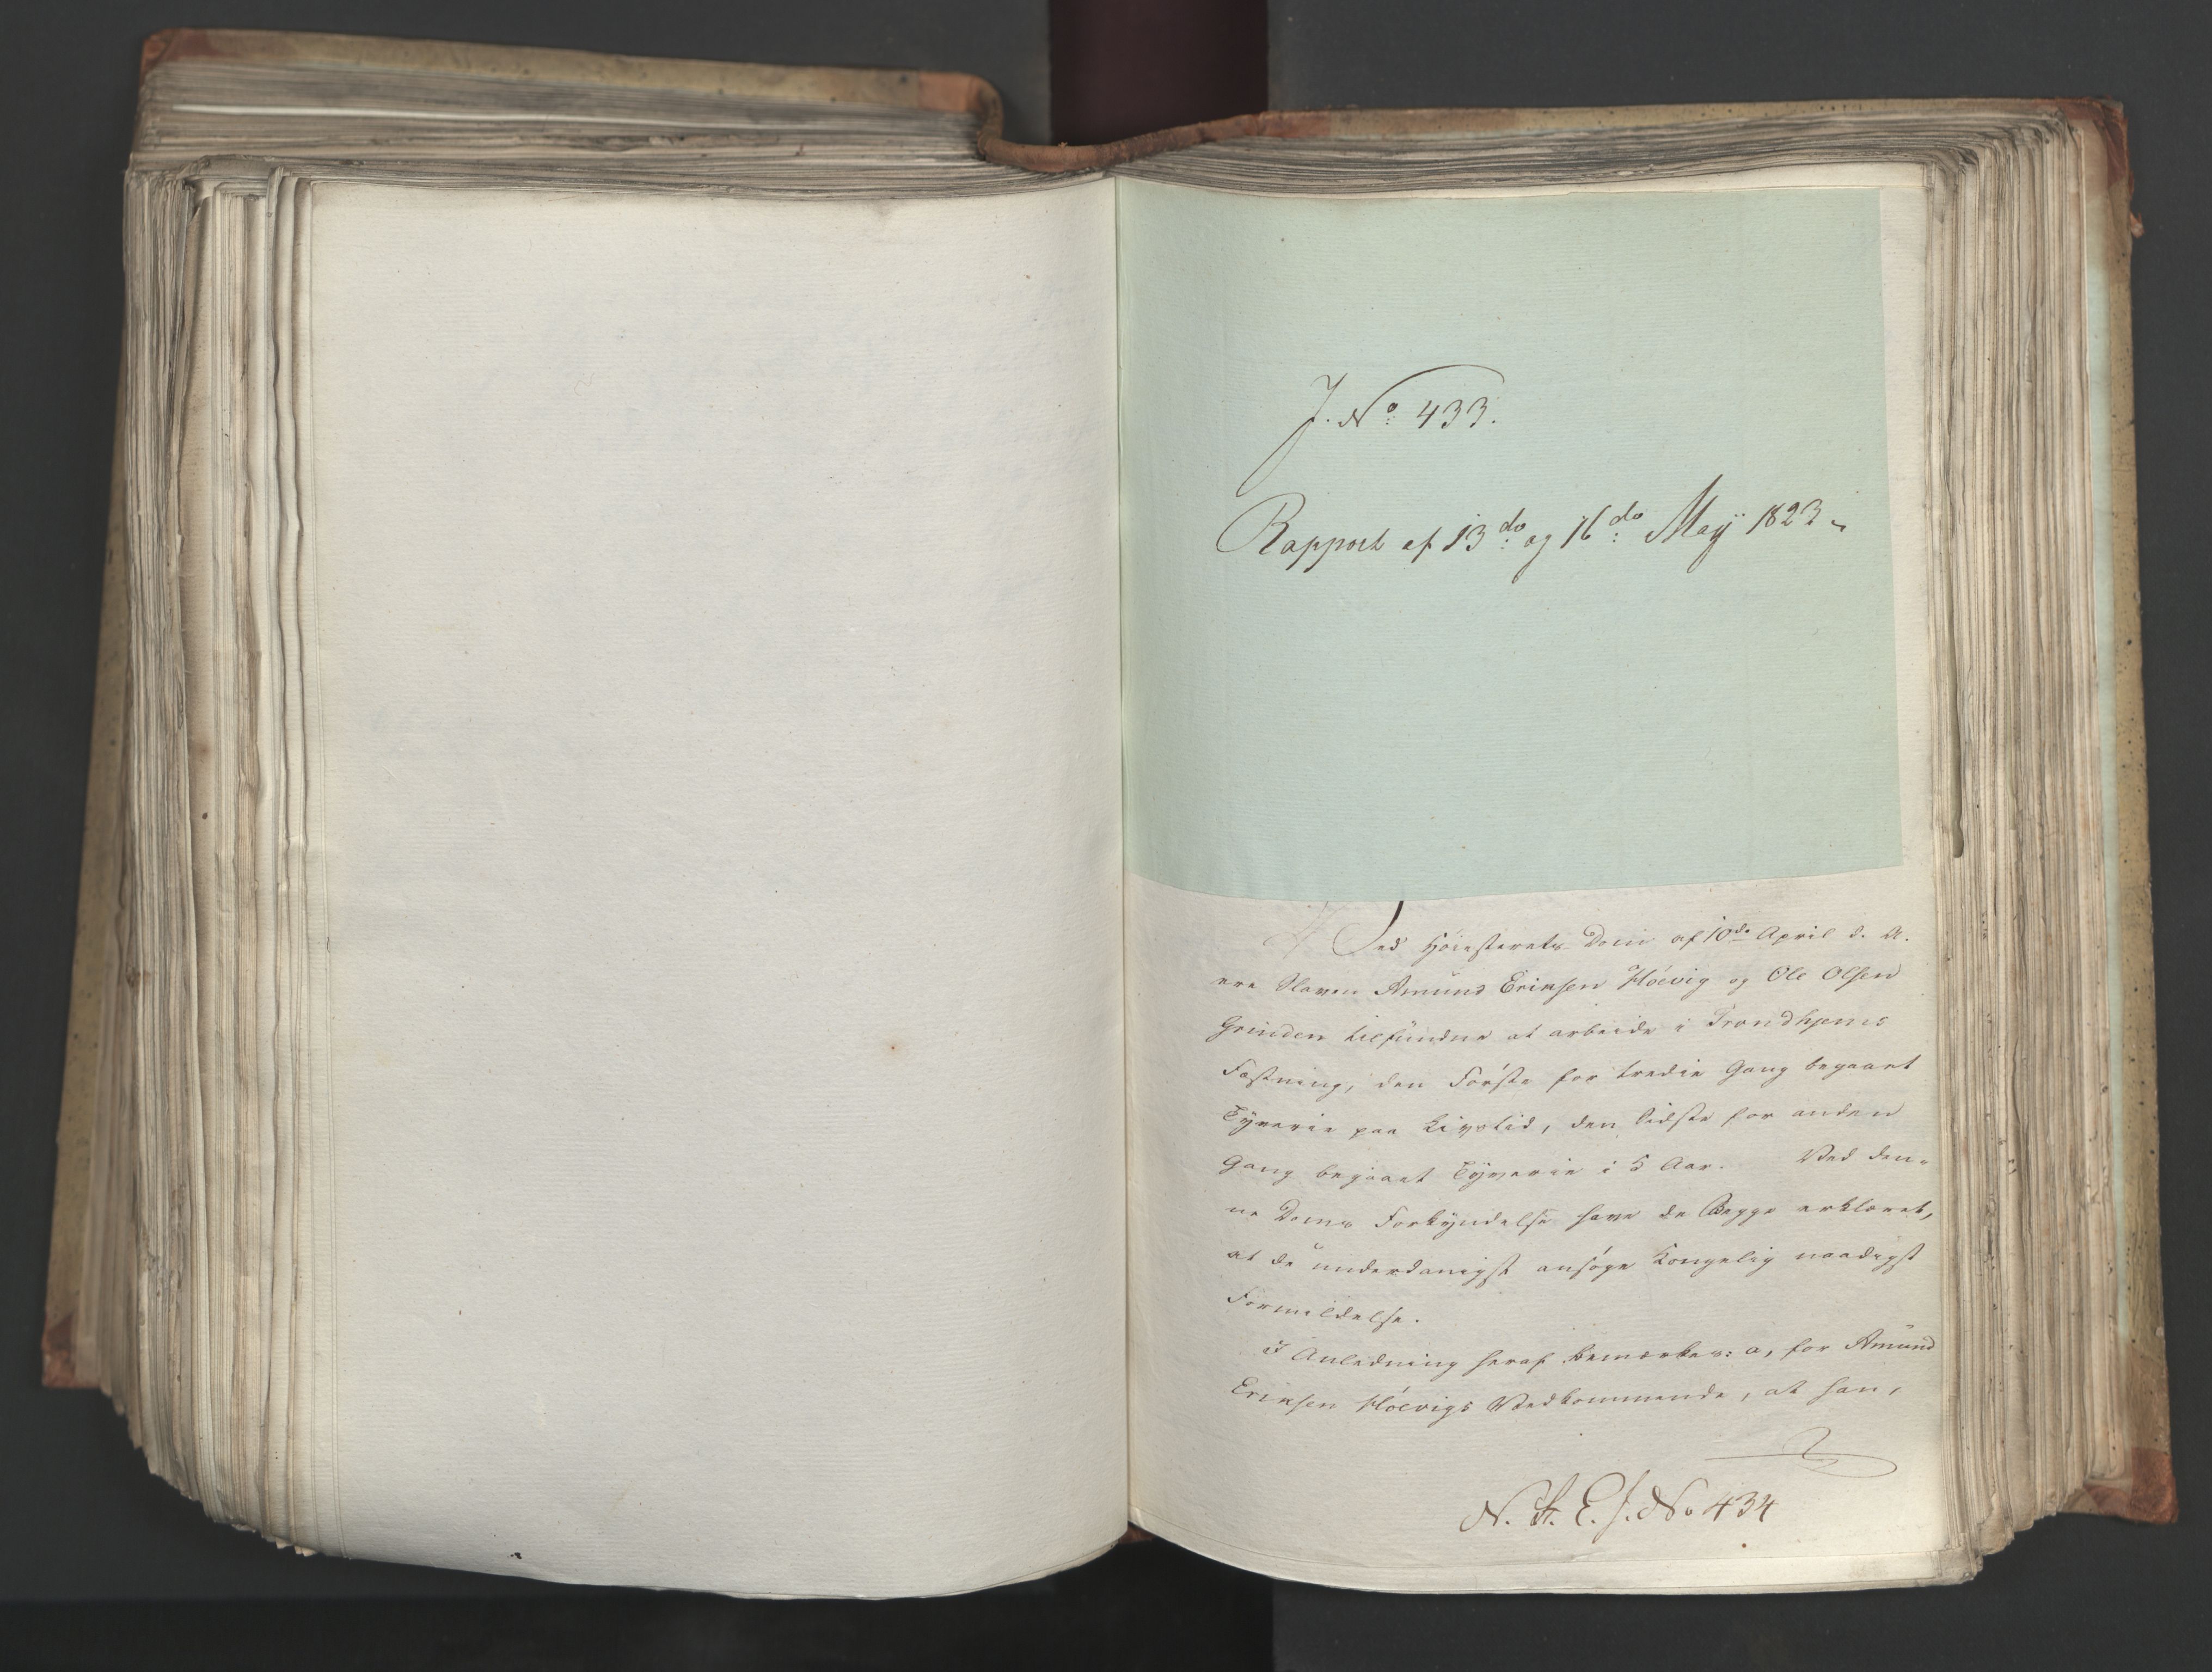 J. No: 433.
Rapport af 13do: og 16do: Maij 1823
Ved Høiesterets Dom af 10de April d. A.
ere Slaven Amund Eriksen Høevig og Ole Olsen
Grinden tilfundne at arbeide i Trondhjems
Fæstning, den Første for tredie Gang begaaet
Tyverie paa Livstid, den Sidste for anden
Gang begaaet Tyverie i 5 Aar. Ved den-
ne Doms Forkyndelse have de Begge erklæret,
at de underdanigst ansøge Kongelig naadigst
Formildelse.
I Anledning heraf bemærkes: a, for Amund
Eriksen Høevigs Vedkommende, at han,
N. St. E. J. No 434